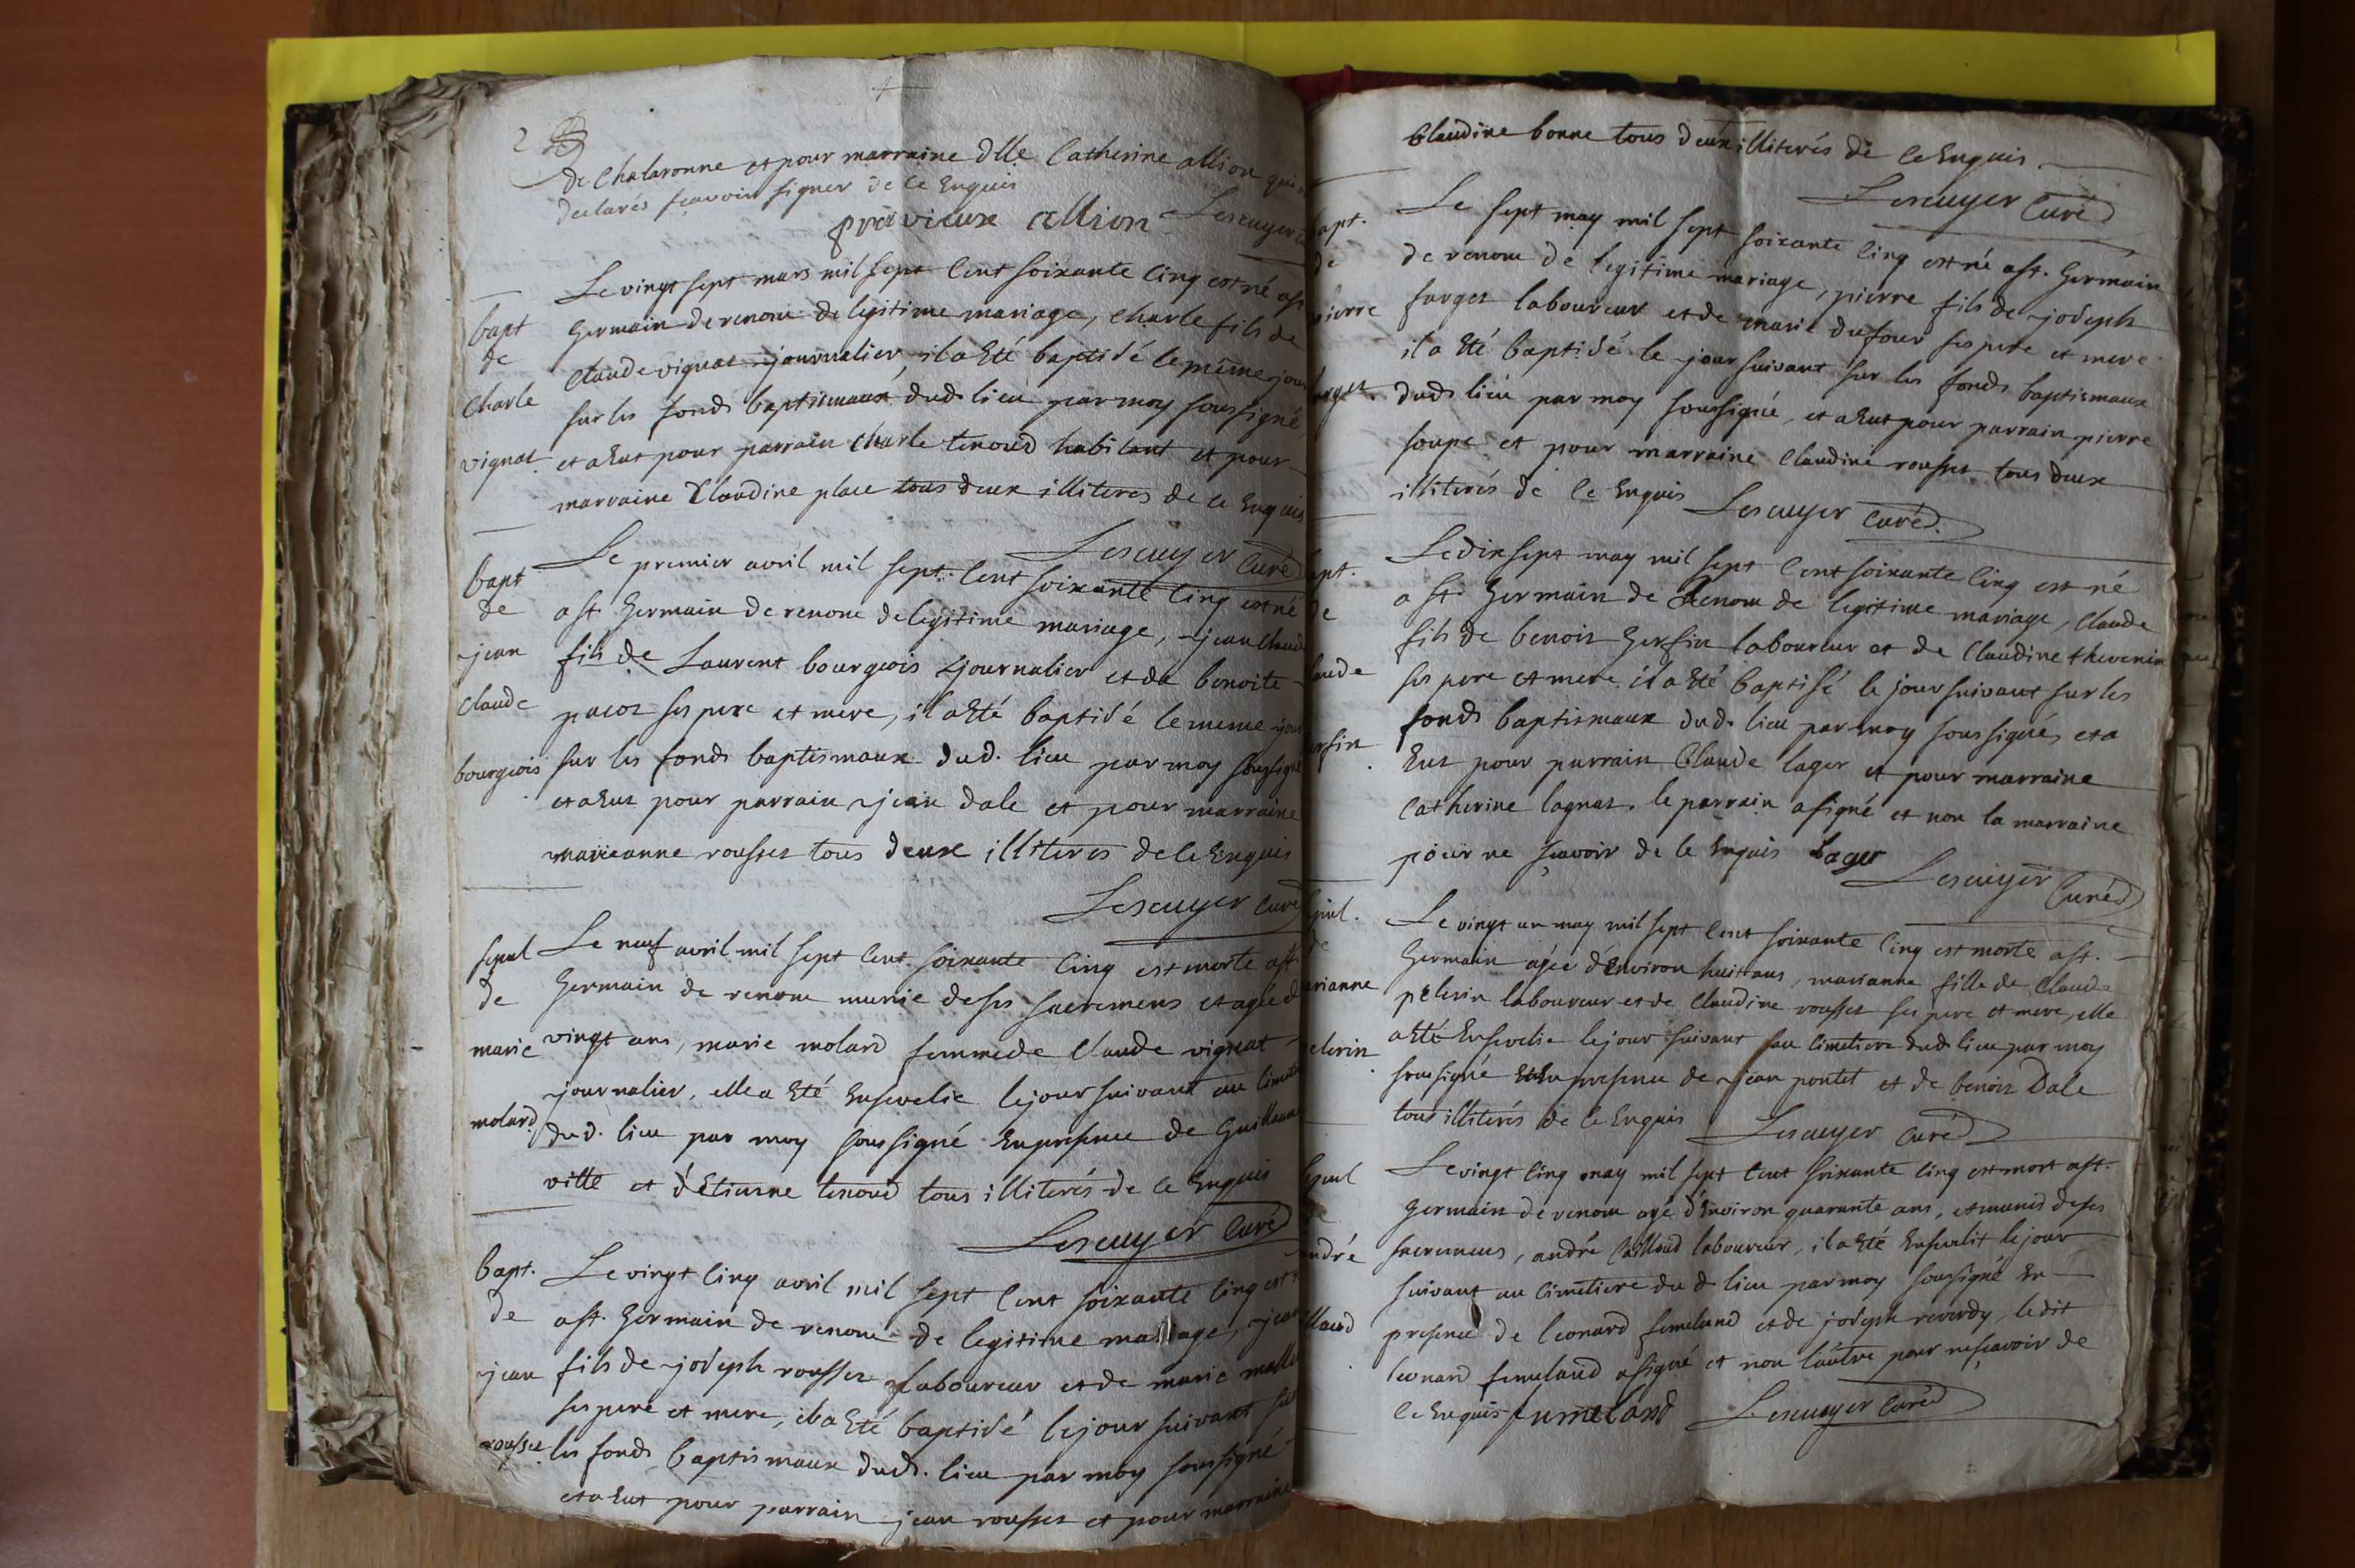 2
de Chalaronne et pour marraine dlle Catherine allion qui
declarés sçavoir signer de ce Enquis
previeux allion Lescuyer
Le vingt sept mars mil sept Cent soixante Cinq est né a st
bapt Germain de renom de legitime mariage, Charle fils de
de Claude vignat journalier, il a Eté baptisé le même jour
Charle sur les fonds baptismaux dud. lieu par moy soussigné,
vignat. et a Eut pour parrain Charle tenoud habitant et pour
marraine Claudine place tous deux illiteres de ce Enquis
Lescuyer Curé
bapt Le premier avril mil sept Cent soixante Cinq est né
de a st. Germain de renom de legitime mariage, jean Claud
jean fils de Laurent bourgeois journalier et de benoite
Claude pacot ses pere et mere, il a Eté baptisé le meme jour
bourgeois sur les fonds baptismaux dud. lieu par moy soussigné
et a Eut pour parrain jean dale et pour marraine
marieanne rousset tous deux illiteres de ce Enquis
Lescuyer Curé
sepul Le neuf avril mil sept Cent soixante Cinq est morte a st.
de Germain de renom munie de ses sacremens et agée d
marie vingt ans, marie molard femme de Claude vignat
journalier, elle a Eté Ensevelie le jour suivant au Cimet
molard dud. lieu par moy soussigné En presence de Guillaum
ville et d'Etienne tenoud tous illiterés de ce Enquis
Lescuyer Curé
bapt. Le vingt Cinq avril mil sept Cent soixante Cinq est
de a st. Germain de renom de legitime mariage, jean
jean fils de joseph rousset laboureur et de marie
ses pere et mere, il a Eté baptisé le jour suivant su
rousset. les fonds baptismaux dud. lieu par moy soussigné
et a Eut pour parrain jean rousset et pour marraine
Claudine bonne tous deux illiterés de ce Enquis
Lescuyer Curé
bapt. Le sept may mil sept soixante Cinq est né a st. Germain
de de renom de legitime mariage, pierre fils de joseph
pierre farget laboureur et de marie dufour ses pere et mere
il a Eté baptisé le jour suivant sur les fonds baptismaux
farget. dud. lieu par moy soussigné, et a Eut pour parrain pierre
soupe et pour marraine Claudine rousset tous deux
illiterés de ce Enquis Lescuyer Curé
bapt. Le dix sept may mil sept Cent soixante Cinq est né
de a st. Germain de Renom de legitime mariage, Claude
fils de benoit Gerfin laboureur et de Claudine thevenin
laude ses pere et mere il a Eté baptisé le jour suivant sur les
fonds baptismaux dud. lieu par moy soussigné, et a
erfin Eut pour parrain Claude lager et pour marraine
Catherine lagnat. le parrain a signé et non la marraine
pour ne sçavoir de ce Enquis Lager
Lescuyer Curé
sepul. Le vingt un may mil sept Cent soixante Cinq est morte a st.
de Germain agée d'Environ huit ans, marianne fille de Claude
arianne pelerin laboureur et de Claudine rousset ses pere et mere, elle
a Eté Ensevelie le jour suivant au Cimetiere dud. lieu par moy
elerin soussigné En presence de jean pontet et de benoit Dale
tous illiterés de ce Enquis Lescuyer Curé
sepul Le vingt Cinq may mil sept Cent soixante Cinq est mort a st.
de Germain de renom agé d'Environ quarante ans, et munis de ses
andré sacremens, andré Caillaud laboureur, il a Eté Ensevelit le jour
suivant au Cimetiere du d. lieu par moy soussigné En
llaud presence de leonard fumeland et de joseph reverdy, ledit
leonard fumeland a signé et non l'autre pour ne sçavoir de
ce Enquis fumeland Lescuyer Curé